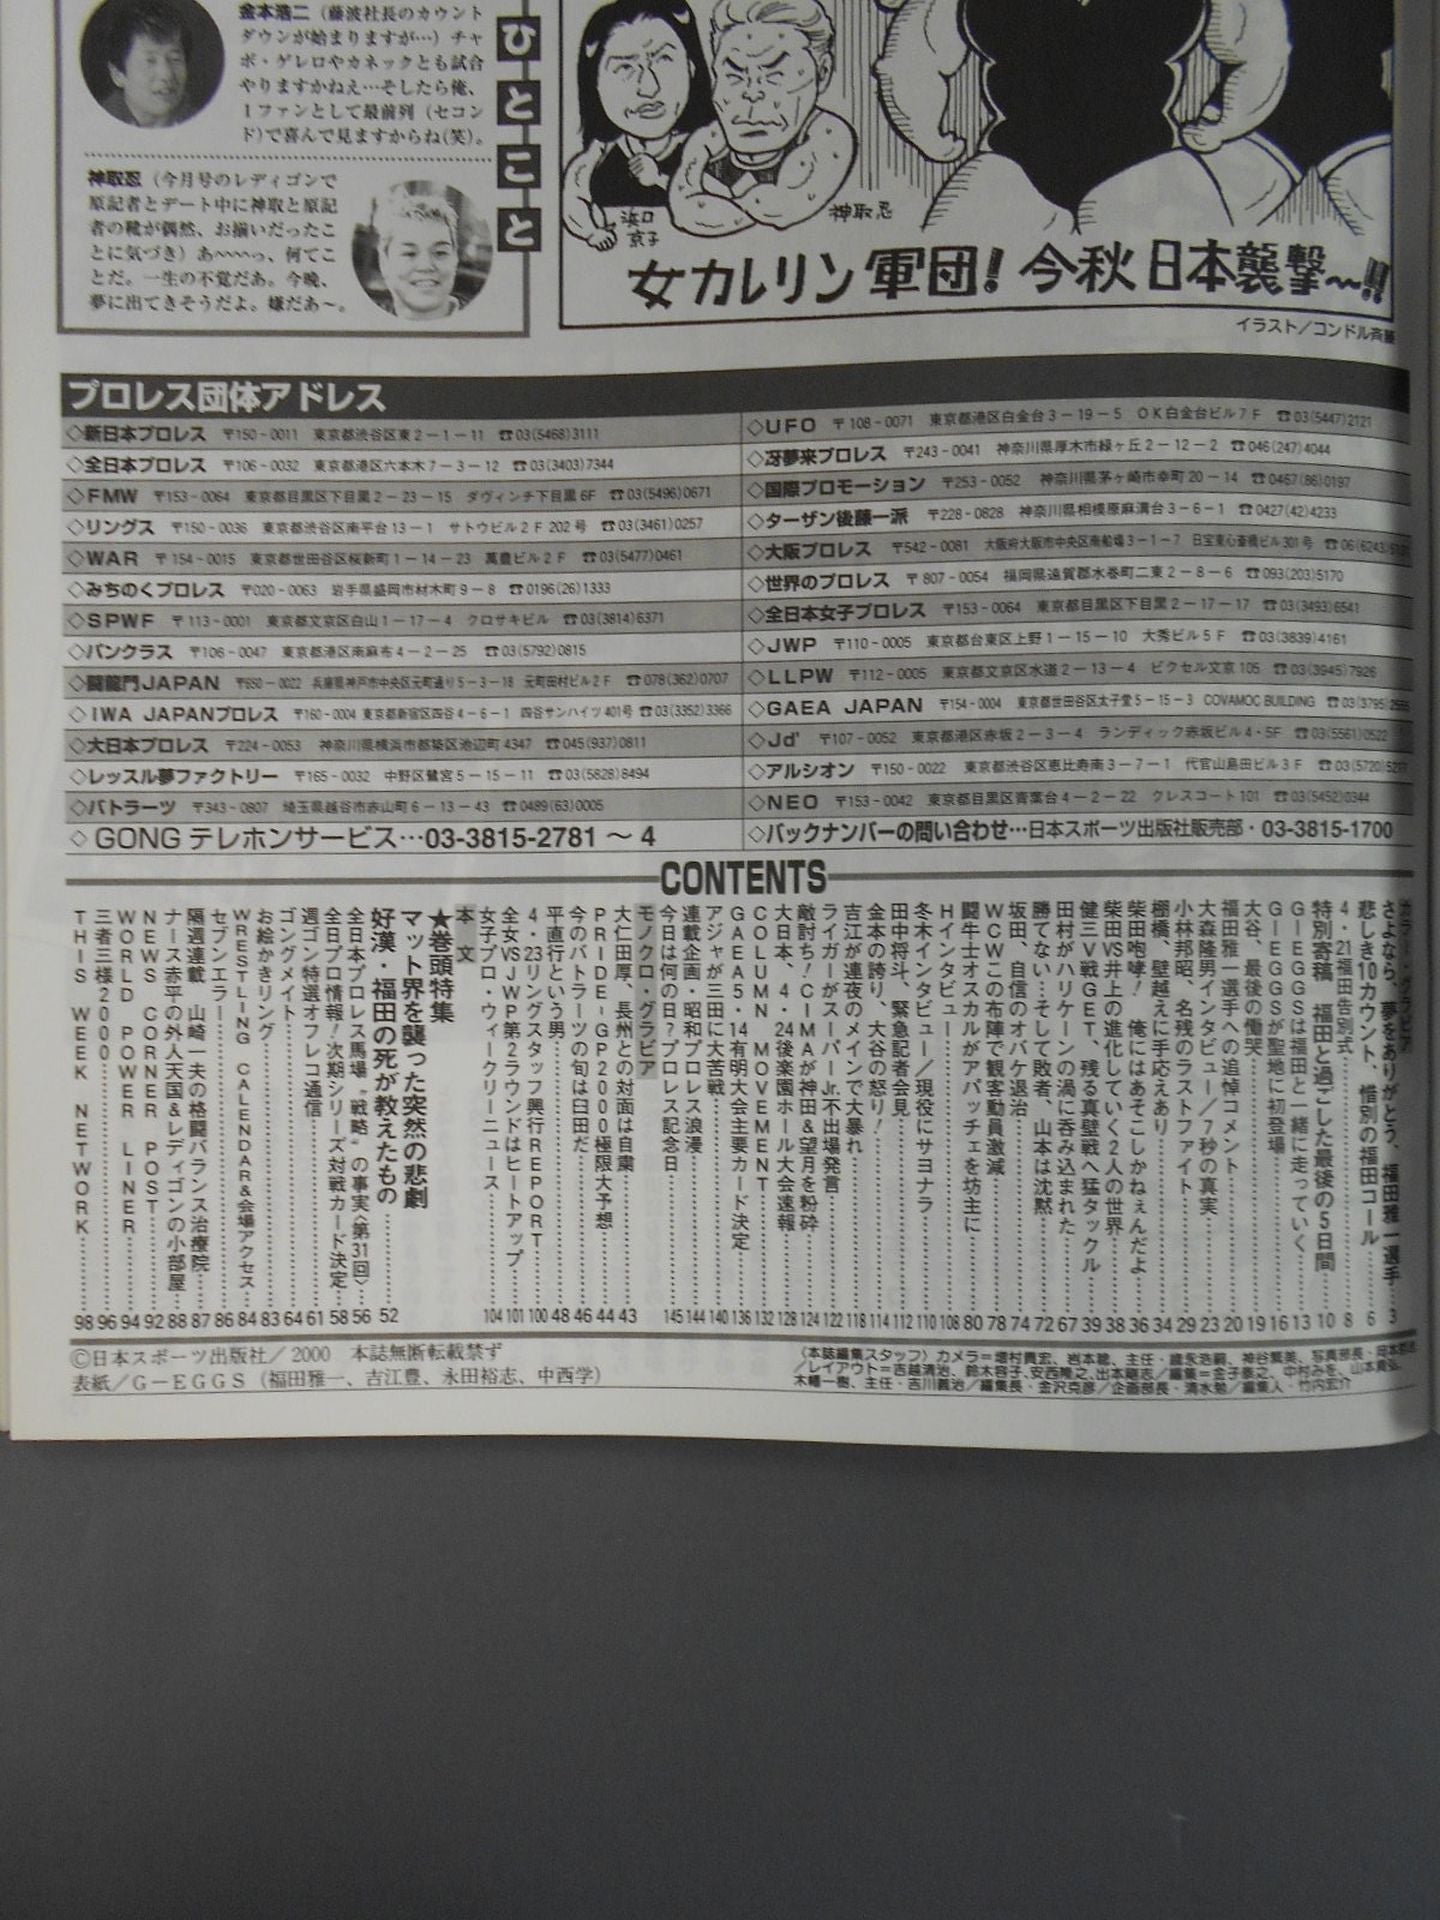 ひとこと
金本浩二（藤波社長のカウント
ダウンが始まりますが…）チャ
ボ・ゲレロやカネックとも試合
やりますかねえ…そしたら俺、
1ファンとして最前列（セコン
ド）で喜んで見ますからね（笑）。
神取忍（今月号のレディゴンで
原記者とデート中に神取と原記
者の靴が偶然、お揃いだったこ
とに気づき）あ〜〜〜っ、何てこ
とだ。一生の不覚だあ。今晩、
夢に出てきそうだよ。嫌だあ〜。
浜口
京子
神取忍
女カレリン軍団！今秋日本襲撃〜!!
イラスト／コンドル斉藤
プロレス団体アドレス
◇新日本プロレス 〒150-0011 東京都渋谷区東2-1-11 ☎03(5468)3111
◇全日本プロレス 〒106-0032 東京都港区六本木7-3-12 ☎03(3403)7344
◇FMW 〒153-0064 東京都目黒区下目黒2-23-15 ダヴィンチ下目黒6F ☎03(5496)0671
◇リングス 〒150-0036 東京都渋谷区南平台13-1 サトウビル2F202号 ☎03(3461)0257
◇WAR 〒154-0015 東京都世田谷区桜新町1-14-23 萬豊ビル2F ☎03(5477)0461
◇みちのくプロレス 〒020-0063 岩手県盛岡市材木町9-8 ☎0196(26)1333
◇SPWF 〒113-0001 東京都文京区白山1-17-4 クロサキビル ☎03(3814)6371
◇パンクラス 〒106-0047 東京都港区南麻布4-2-25 ☎03(5792)0815
◇闘龍門JAPAN 〒650-0022 兵庫県神戸市中央区元町通り5-3-18 元町田村ビル2F ☎078(362)0707
◇IWA JAPANプロレス 〒160-0004 東京都新宿区四谷4-6-1 四谷サンハイツ401号 ☎03(3352)3366
◇大日本プロレス 〒224-0053 神奈川県横浜市都築区池辺町4347 ☎045(937)0811
◇レッスル夢ファクトリー 〒165-0032 中野区鷺宮5-15-11 ☎03(5828)8494
◇バトラーツ 〒343-0807 埼玉県越谷市赤山町6-13-43 ☎0489(63)0005
◇GONGテレホンサービス…03-3815-2781〜4
◇UFO 〒108-0071 東京都港区白金台3-19-5 OK白金台ビル7F ☎03(5447)2121
◇冴夢来プロレス 〒243-0041 神奈川県厚木市緑ヶ丘2-12-2 ☎046(247)4044
◇国際プロモーション 〒253-0052 神奈川県茅ヶ崎市幸町20-14 ☎0467(86)0197
◇ターザン後藤一派 〒228-0828 神奈川県相模原麻溝台3-6-1 ☎0427(42)4233
◇大阪プロレス 〒542-0081 大阪府大阪市中央区南船場3-1-7 日宝東心斎橋ビル301号 ☎06(6243)
◇世界のプロレス 〒807-0054 福岡県遠賀郡水巻町二東2-8-6 ☎093(203)5170
◇全日本女子プロレス 〒153-0064 東京都目黒区下目黒2-17-17 ☎03(3493)6541
◇JWP 〒110-0005 東京都台東区上野1-15-10 大秀ビル5F ☎03(3839)4161
◇LLPW 〒112-0005 東京都文京区水道2-13-4 ビクセル文京105 ☎03(3945)7926
◇GAEA JAPAN 〒154-0004 東京都世田谷区太子堂5-15-3 COVAMOC BUILDING ☎03(3795)
◇Jd' 〒107-0052 東京都港区赤坂2-3-4 ランディック赤坂ビル4・5F ☎03(5561)0522
◇アルシオン 〒150-0022 東京都渋谷区恵比寿南3-7-1 代官山島田ビル3F ☎03(5720)
◇NEO 〒153-0042 東京都目黒区青葉台4-2-22 クレスコート101 ☎03(5452)0344
◇バックナンバーの問い合わせ…日本スポーツ出版社販売部・03-3815-1700
CONTENTS
カラー・グラビア
さよなら、夢をありがとう、福田雅一選手……3
悲しき10カウント、惜別の福田コール……6
4・21福田告別式……8
特別寄稿 福田と過ごした最後の5日間……10
G-EGGSは福田と一緒に走っていく……13
G-EGGSが聖地に初登場……16
大谷、最後の慟哭……19
福田雅一選手への追悼コメント……20
大森隆男インタビュー／7秒の真実……23
小林邦昭、名残のラストファイト……29
棚橋、壁越えに手応えあり……34
柴田咆哮！ 俺にはあそこしかねぇんだよ……36
柴田VS井上の進化していく2人の世界……38
健三V戦GET、残る真壁戦へ猛タックル……39
田村がハリケーンの渦に呑み込まれた……67
勝てない…そして敗者、山本は沈黙……72
坂田、自信のオバケ退治……74
WCWこの布陣で観客動員激減……78
闘牛士オスカルがアパッチェを坊主に……80
Hインタビュー……108
冬木インタビュー／現役にサヨナラ……110
田中将斗、緊急記者会見……112
金本の誇り、大谷の怒り！……114
吉江が連夜のメインで大暴れ……118
ライガーがスーパーJr.不出場発言……122
敵討ち！CIMAが神田&望月を粉砕……124
大日本、4・24後楽園ホール大会速報……128
COLUMN MOVEMENT……132
GAEA5・14有明大会主要カード決定……136
アジャが三田に大苦戦……140
連載企画・昭和プロレス浪漫……144
今日は何の日？プロレス記念日……145
モノクロ・グラビア
大仁田厚、長州との対面は自粛……43
PRIDE-GP2000極限大予想……44
今のバトラーツの旬は臼田だ……46
平直行という男……48
4・23リングスタッフ興行REPORT……100
全女VSJWP第2ラウンドはヒートアップ……101
女子プロ・ウィークリーニュース……104
本文
★巻頭特集
マット界を襲った突然の悲劇
好漢・福田の死が教えたもの……52
全日本プロレス馬場〝戦略〟の事実〈第31回〉……56
全日プロ情報！次期シリーズ対戦カード決定……58
週ゴン特選オフレコ通信……61
ゴングメイト……64
お絵かきリング……83
WRESTLING CALENDAR&会場アクセス……84
セブンエラー……86
隔週連載 山崎一夫の格闘バランス治療院……87
ナース赤平の外人天国&レディゴンの小部屋……88
NEWS CORNER POST……92
WORLD POWER LINER……94
三者三様2000……96
THIS WEEK NETWORK……98
©日本スポーツ出版社／2000 本誌無断転載禁ず
表紙／G-EGGS（福田雅一、吉江豊、永田裕志、中西学）
〈本誌編集スタッフ〉カメラ＝増村貴宏、岩本聡、主任・徳永浩嗣、神谷繁美、写真部長・岡本
／レイアウト＝吉越清治、鈴木容子、安西隆之、出本剛志／編集＝金子泰之、中村みを、山本貴弘、
木幡一樹、主任・吉川義治／編集長・金沢克彦／企画部長・清水勉／編集人・竹内宏介